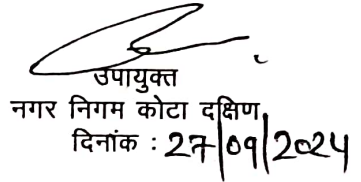 उपायुक्त
नगर निगम कोटा दक्षिण
दिनांक : 27/09/2024